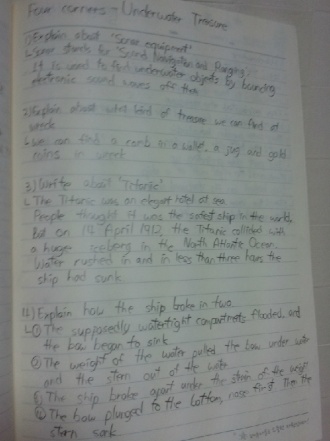 Four corners - Underwater Treasure
1) Explain about "Sonar equipment"
Sonar stands for "Sound Navigation and Ranging.
It is used to find underwater objects by bouncing
electronic sound waves off them
2) Explain about what kind of treasure we can find at
wreck
we can find a comb in a wallet, a jug and gold
coins in wreck
3) Written about "Titanic"
The Titanic was an elegant hotel at sea.
People thought it was the safest ship in the world.
But on 14th April 1912, the Titanic collided with
a huge iceberg in the North Atlantic Ocean.
Water rushed in and in less than three hours the
ship had sunk
4) Explain how the ship broke in two.
① The supposedly watertight compartments flooded, and
the bow began to sink
② The weight of the water pulled the bow under water
and the stern out of the water
③ The ship broke apart under the strain of the weight
④ The bow plunged to the bottom, nose first. Then the
stern sank